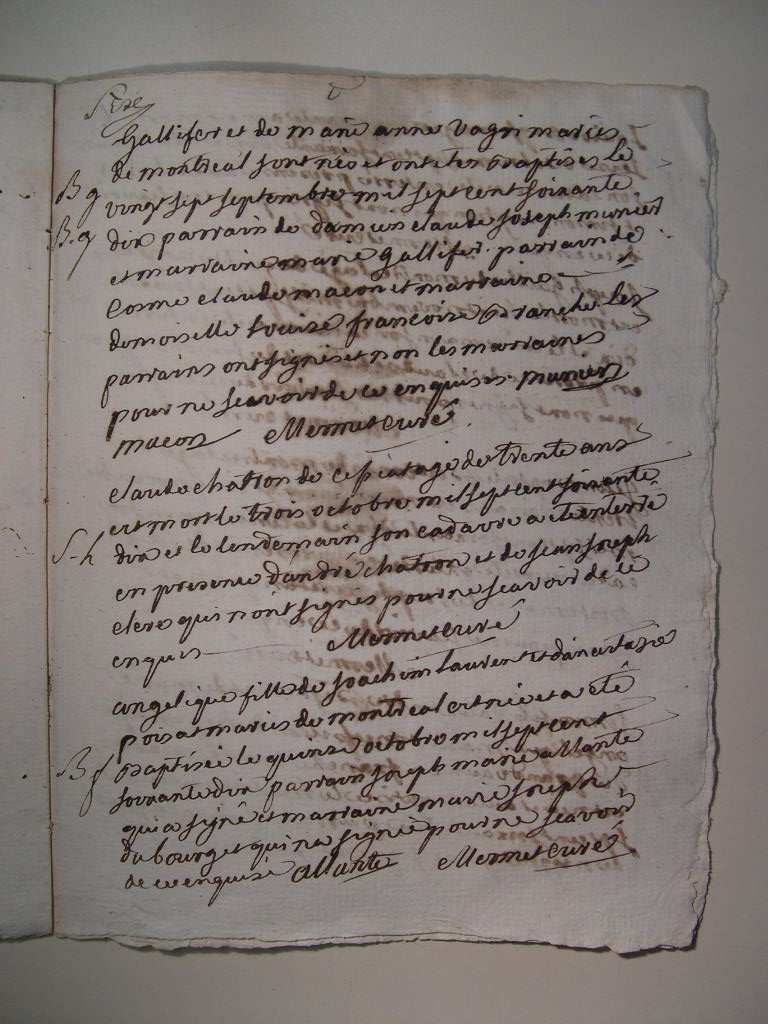 gallifer et de marie anne vagri mariés
de montreal sont nés et ont etes baptises le
B g vingt sept septembre mil sept cent soixante
B. g dix parrain de damien claude joseph munier
et marraine marie gallifer parrain de
cosme claude macon et marraine
demoiselle louise francoise branche les
parrains ont signés et non les marraines
pour ne scavoir de ce enquises munier
macon Mermet curé
claude chatron de ce age de trente ans
est mort le trois octobre mil sept cent soixante
S-h dix et le lendemain son cadavre a ete enterré
en presence d'andré chatron et de jean joseph
clerc qui n'ont signés pour ne scavoir de ce
enquis Mermet curé
angelique fille de joachim laurent et d'anastasie
poisat mariés de montreal est née et a été
B f baptisée le quinze octobre mil sept cent
soixante dix parrain joseph marie allante
qui a signé et marraine marie joseph
du bourget qui na signée pour ne scavoir
de ce enquise allante Mermet curé